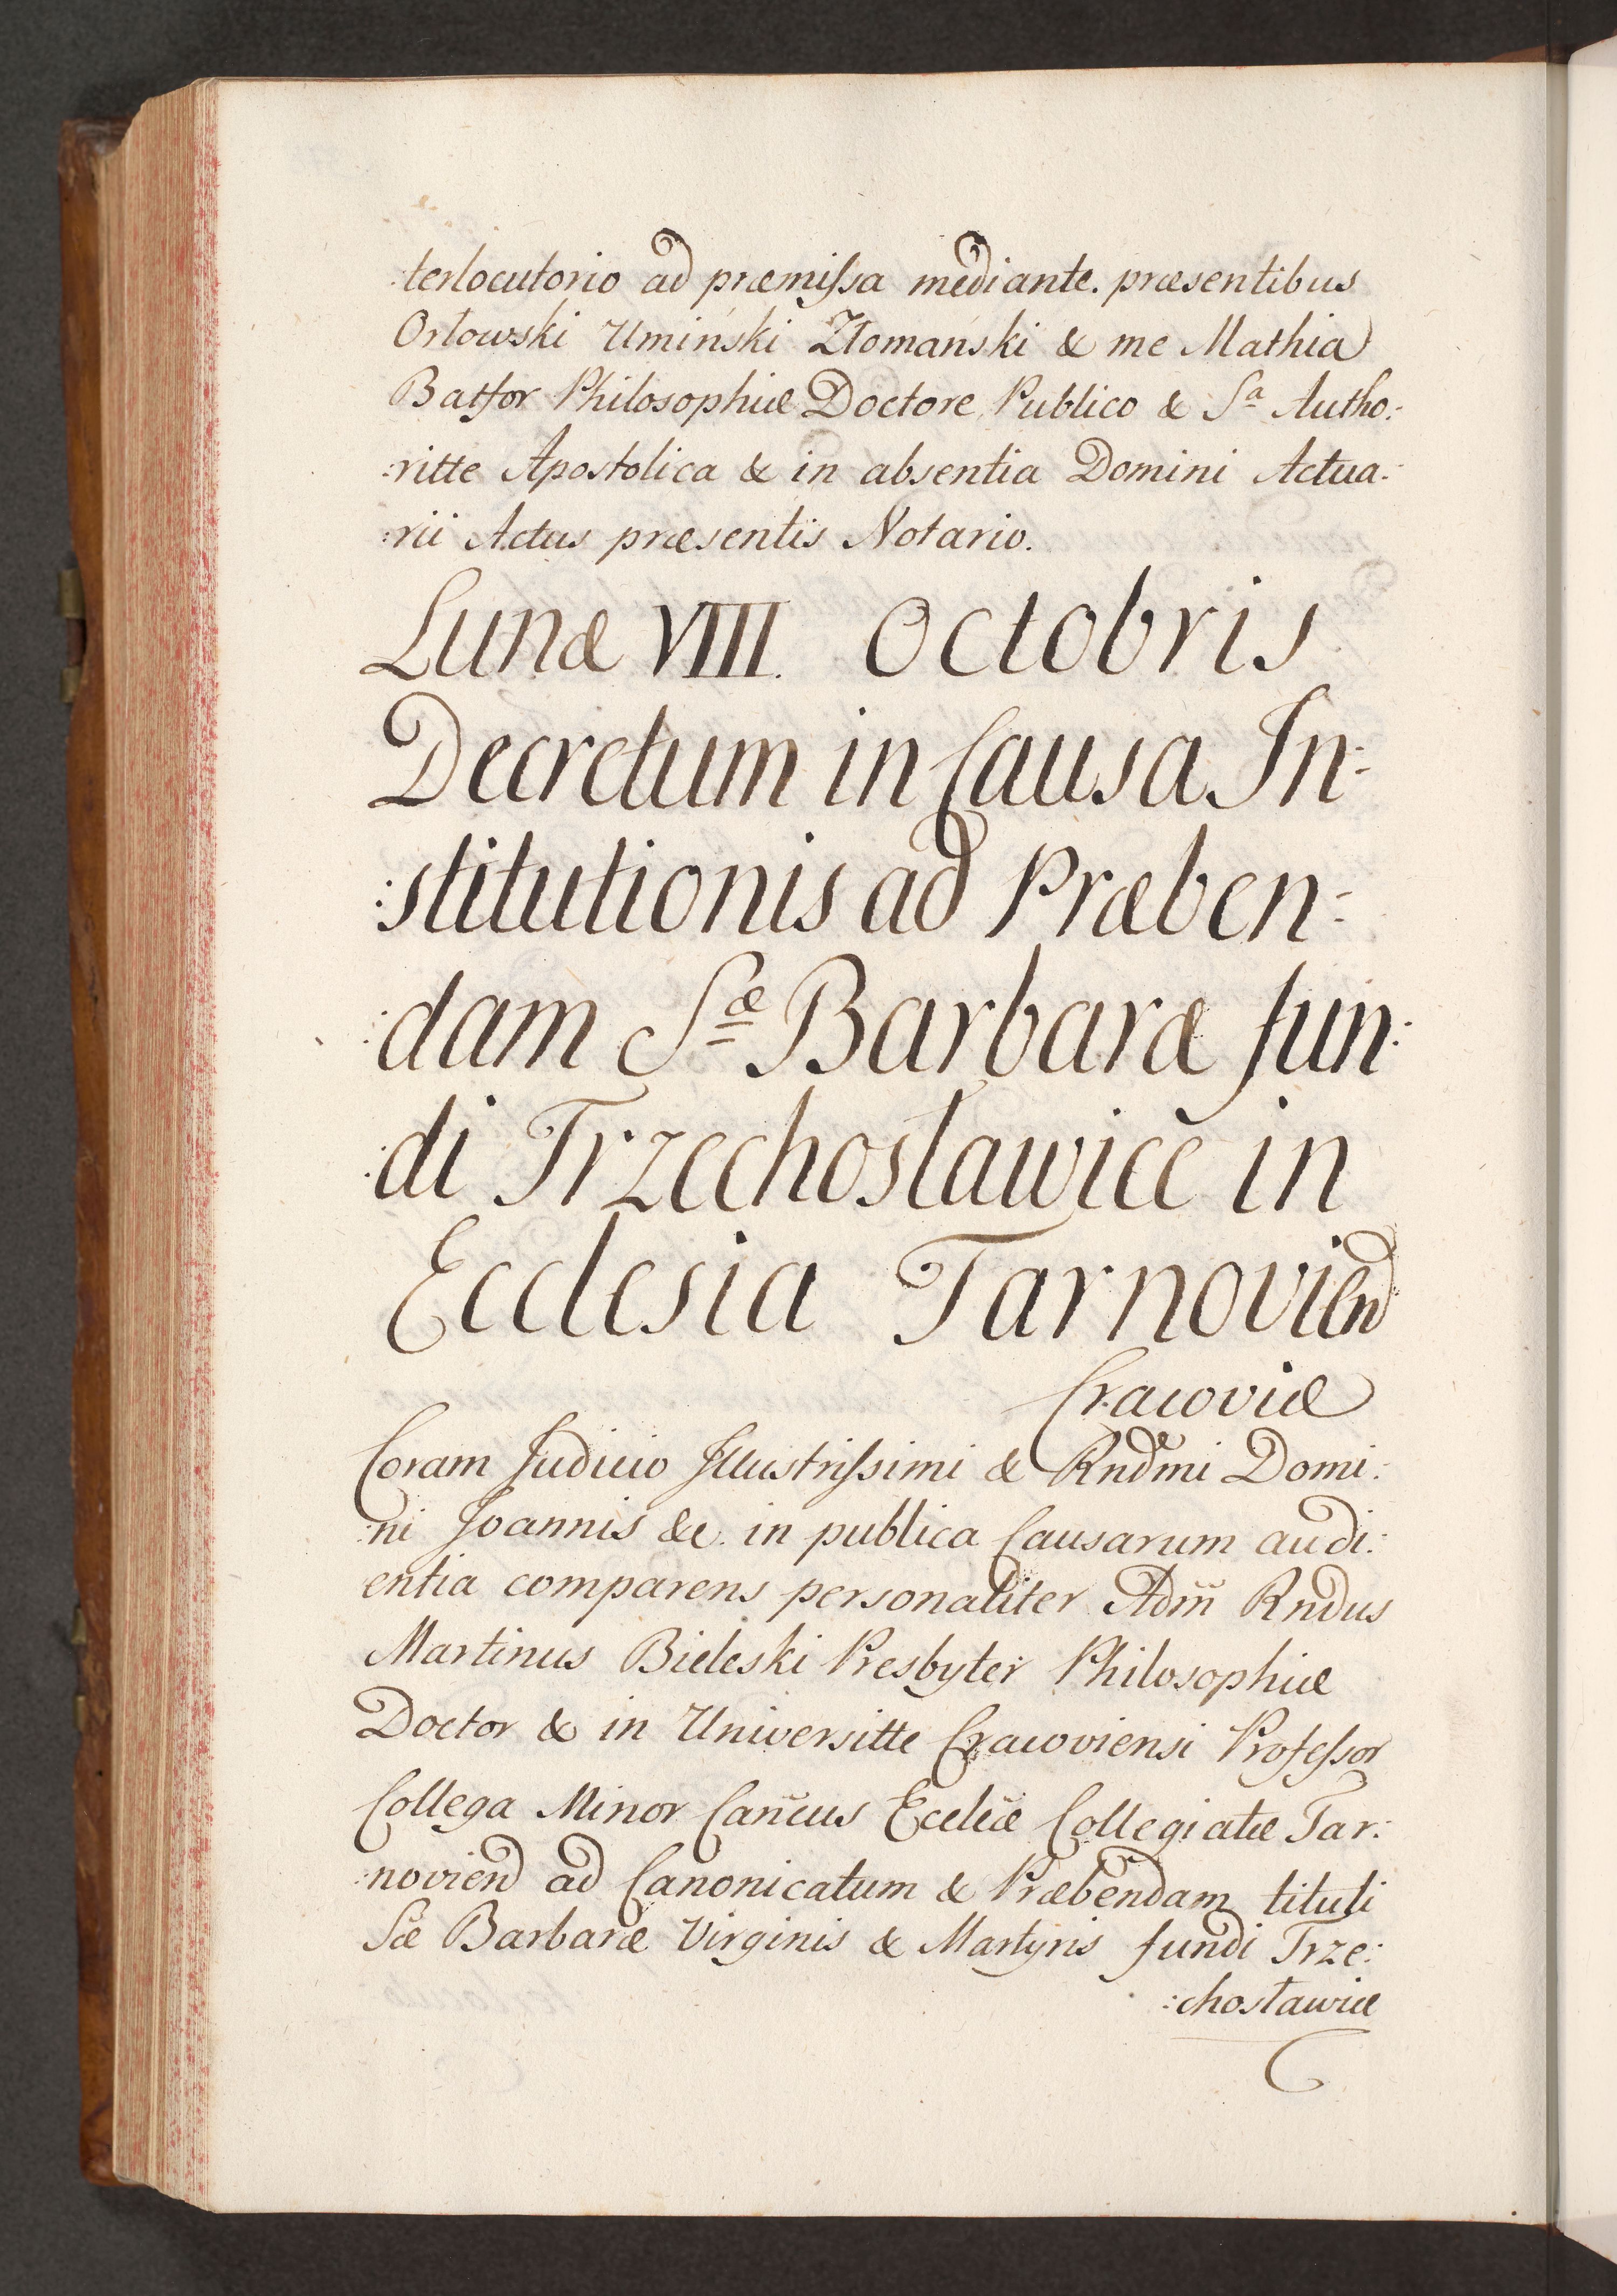 :terlocutorio ad præmissa mediante. præsentibus
Orłowski Umiński Złomański & me Mathia
Batfor Philosophiæ Doctore Publico & Sª Autho:
:ritte Apostolica & in absentia Domini Actua:
:rii Actus præsentis Notario.
Lunæ VIII. Octobris
Decretum in Causa In:
:stitutionis ad Præben:
:dam Sæ Barbaræ fun:
:di Trzechosławice in
Ecclesia Tarnovien
Cracoviæ
Coram Judicio Illustrissimi & Rndmi Domi:
:ni Joannis &c. in publica Causarum audi:
entia comparens personaliter Adm̃ Rndus
Martinus Bieleski Presbyter Philosophiæ
Doctor & in Universitte Cracoviensi Professor
Collega Minor Cañcus Eccliæ Collegiatæ Tar:
:novien ad Canonicatum & Præbendam tituli
Sæ Barbaræ Virginis & Martyris fundi Trze:
:chosławice